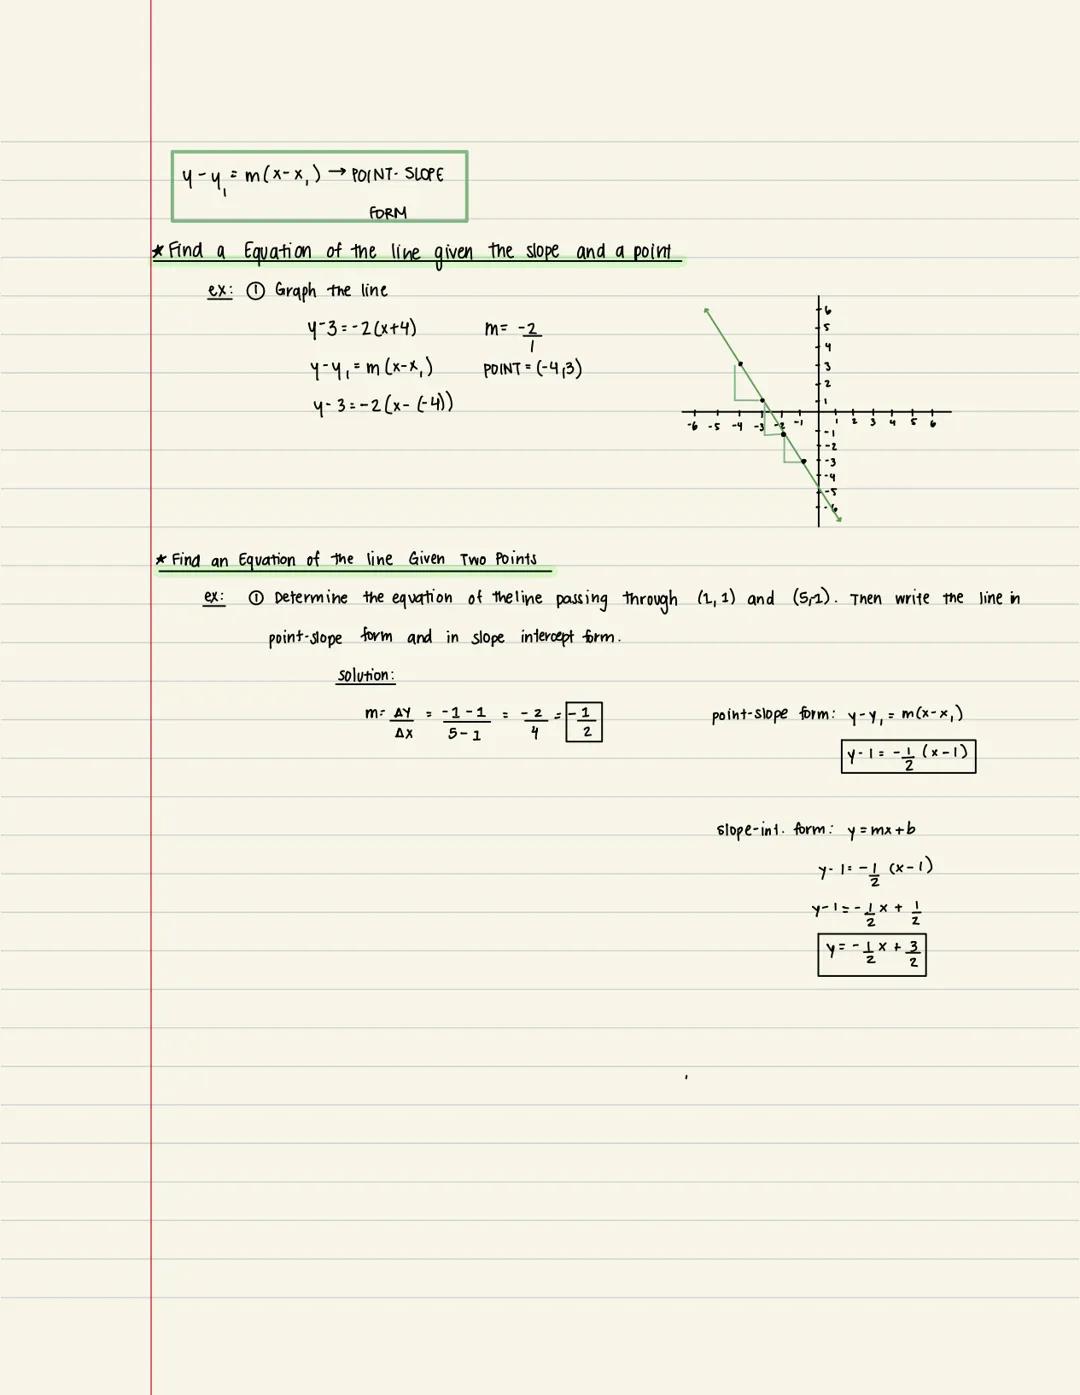 y-y₁ = m(x-x₁) → POINT-SLOPE
FORM
* Find a Equation of the line given the slope and a point
ex: ① Graph the line
y-3=-2(x+4) m= -2/1
y-y₁=m(x-x₁) POINT=(-4,3)
y-3=-2(x-(-4))
6
5
4
3
2
1
-6 -5 -4 -3 -2 -1 1 2 3 4 5 6
-1
-2
-3
-4
-5
-6
* Find an Equation of the line Given Two Points
ex: ① Determine the equation of the line passing through (1,1) and (5,-1). Then write the line in
point-slope form and in slope intercept form.
solution:
m= ΔY/ΔX = -1-1/5-1 = -2/4 = -1/2
point-slope form: y-y₁=m(x-x₁)
y-1=-1/2(x-1)
slope-int. form: y=mx+b
y-1=-1/2(x-1)
y-1=-1/2x+1/2
y=-1/2x+3/2